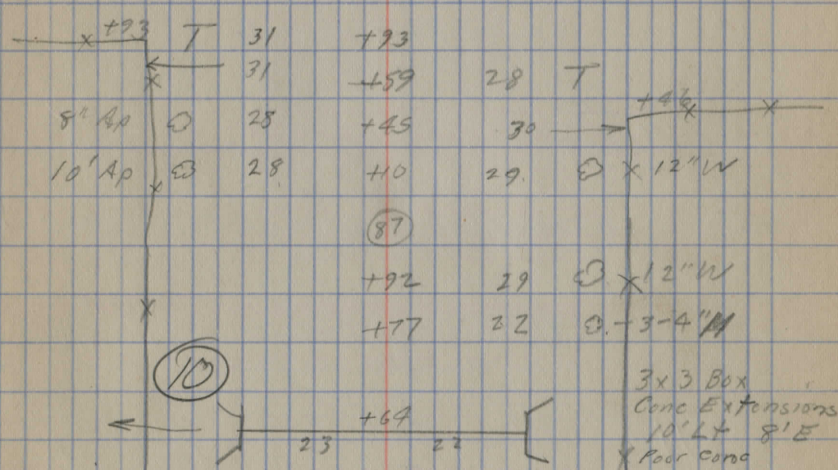 +93 T 31 +93
31 +59 28 T
8" Ap 28 +45 30 +46
10' Ap 28 +10 29 12" W
87
+92 29 12" W
+77 22 3-4"
10 3x3 Box
Conc Extensions
+64 10' Lt 8' E
23 22 Poor Conc